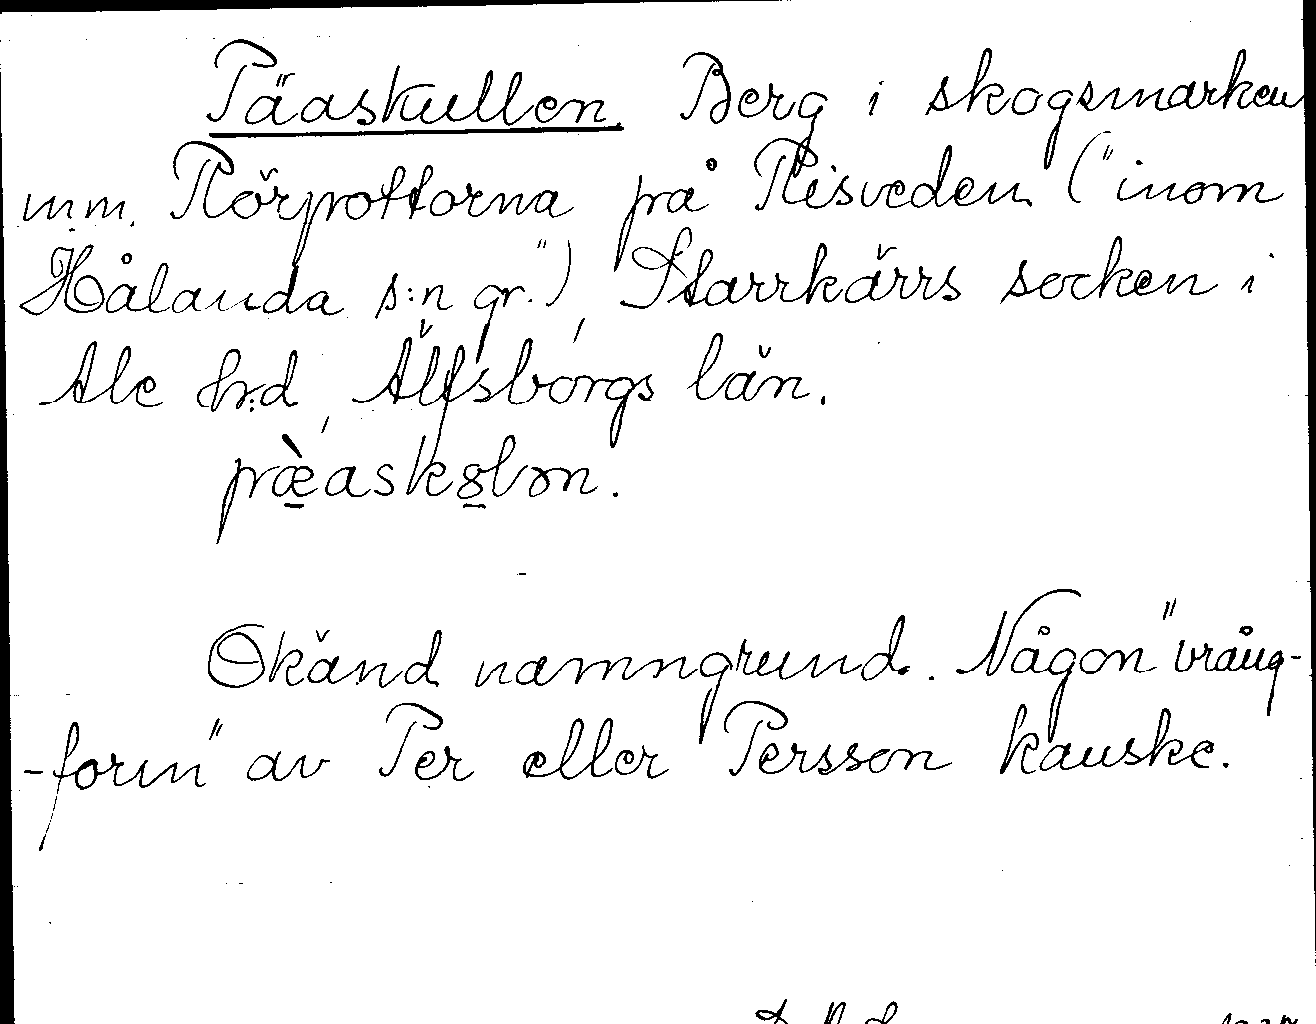 Päaskullen. Berg i skogsmarken
inm. Rörpottorna på Risveden ("inom
Hålanda s:n gr."), Starrkärrs socken i
Ale hd, Älfsborgs län.
pæ̀askɷlən.
Okänd namngrund. Någon "vräng-
-form" av Per eller Persson kanske.